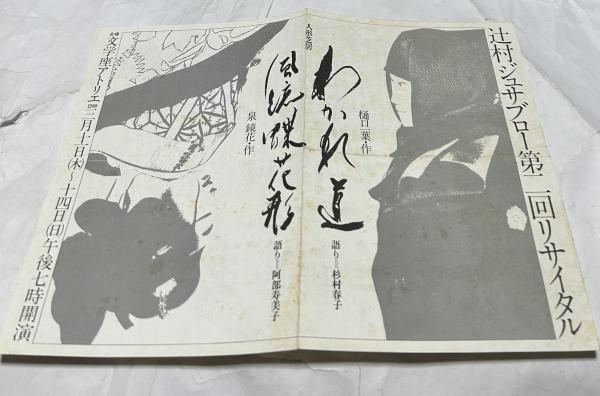 辻村ジュサブロー第二回リサイタル
樋口一葉・作
わかれ道
語り=杉村春子
人形芝居
風流蝶花形
泉鏡花・作
語り=阿部寿美子
会場 文学座アトリエ 日時 三月十一日(木)〜十四日(日)午後七時開演